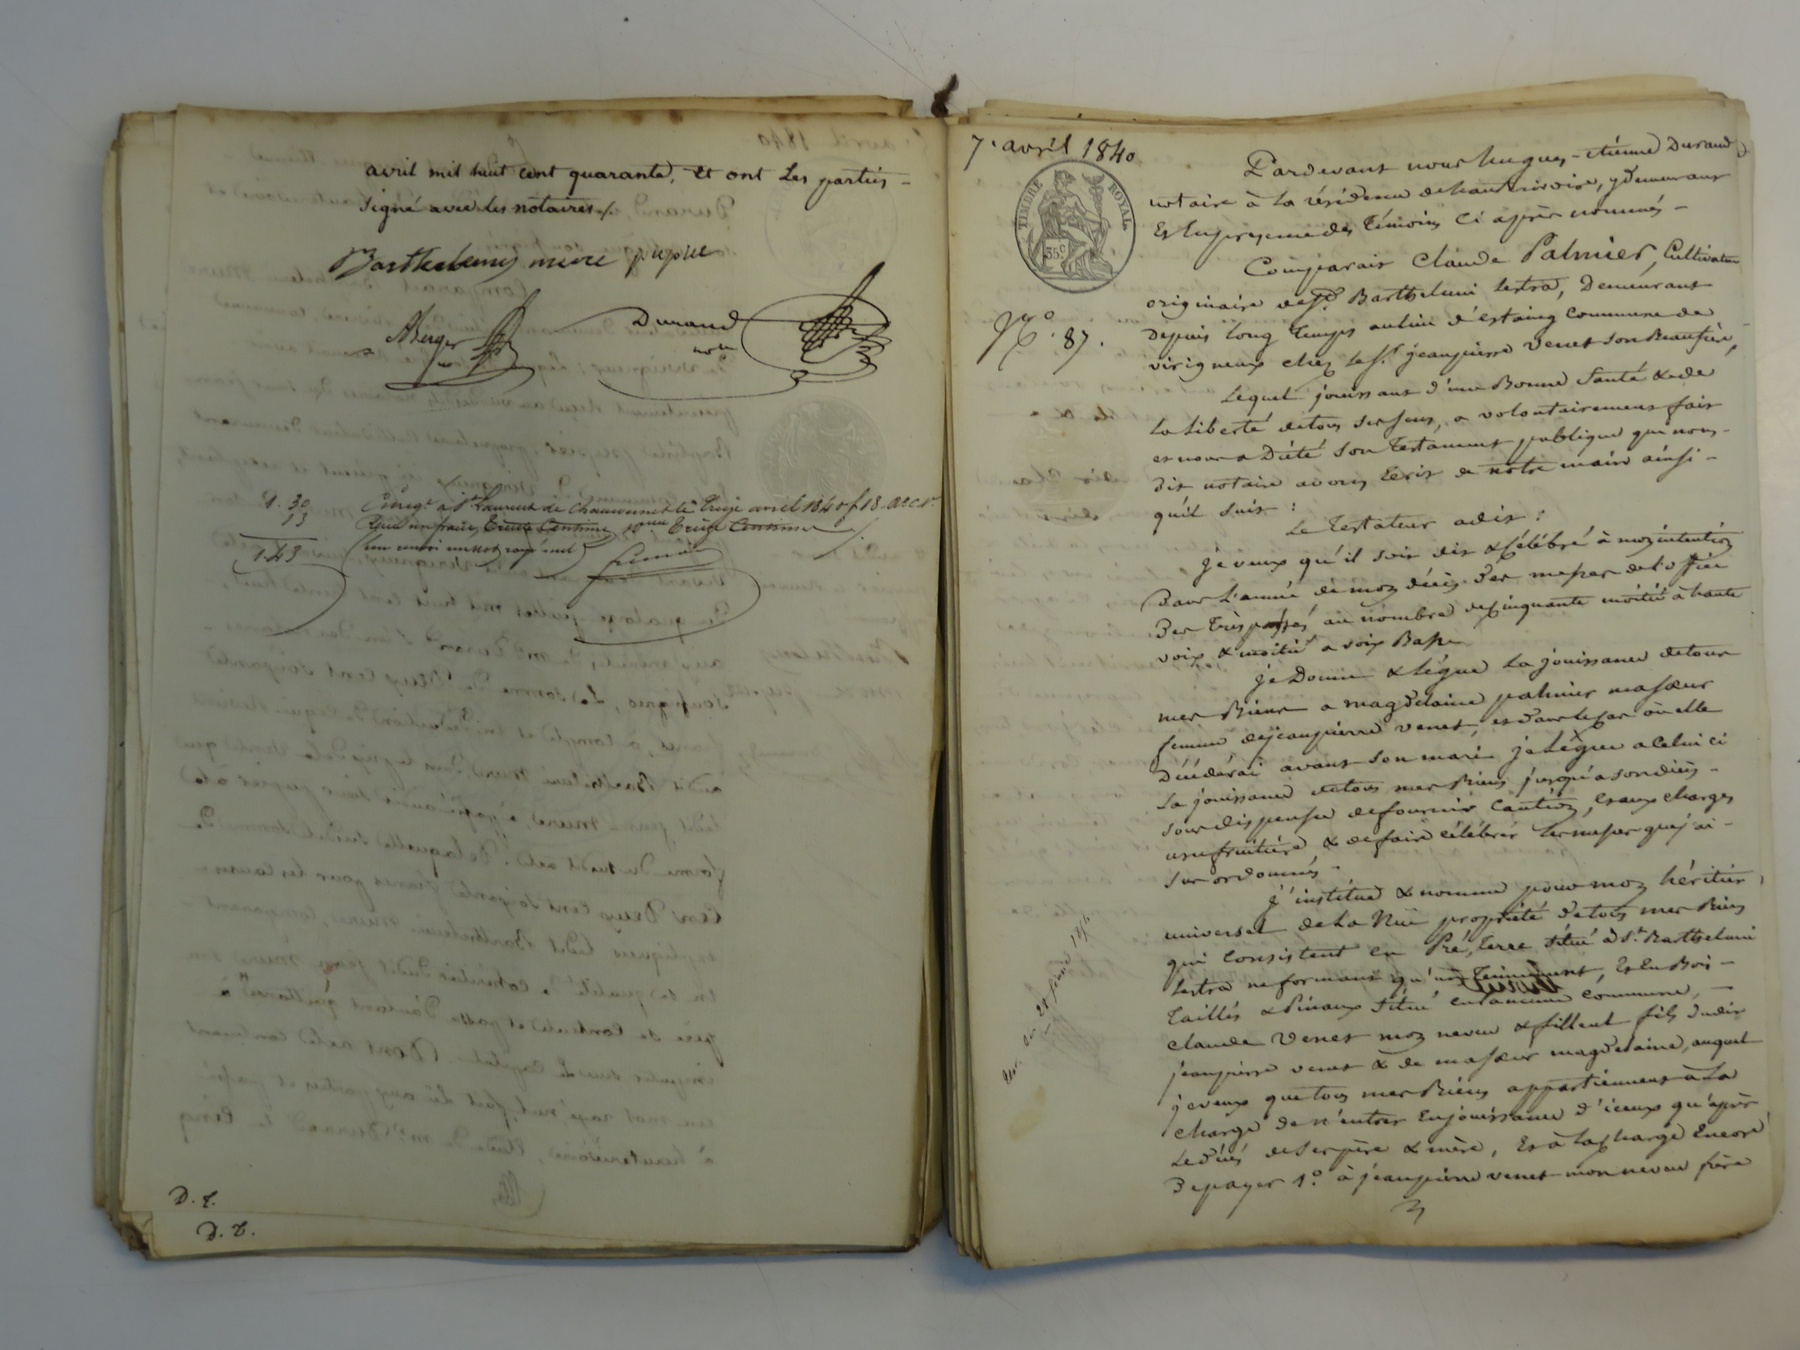 avril mil huit cent quarante, et ont Les parties -
signé avec les notaires ./.
Barthelemy mure pupier
Durand
notre
1. 30
13
1.43
Enregt. à St Laurent de Chamousset le treize avril 1840 f 18
Reçu un franc trente Centimes, 10me treize Centimes
D. T.
D. T.
7. avril 1840
TIMBRE ROYAL
35 c
No. 87.
Pardevant nous hugues-étienne Durand
notaire à la résidence de hauterivoire, y demeurant
Et En presence des Témoins Ci après nommés -
Comparait Claude Palmier, Cultivateur
originaire de St. Barthelemi Lestra, Demeurant
Depuis Long Temps au lieu d'Estaing Commune de
virigneux chez le Sr. jeanpierre venet son Beaufrère,
Lequel jouissant d'une Bonne Santé & de
La Liberté de tous ses sens, a volontairement fait
et nous a Dicté Son Testament publique que nous -
dit notaire avons Ecrit de notre main ainsi -
qu'il suit :
Le Testateur a dit :
je veux qu'il soit dit & Célébré à mon intention
Dans L'année de mon décès des messes de l'office
Des Trépassés au nombre de Cinquante moitié à haute
voix & moitié a voix Basse
je Donne & Lègue La jouissance de tous
mes Biens a magdelaine palmier ma sœur
femme de jeanpierre venet, et dans le cas où elle
Décéderai avant son mari je Lègue a Celui ci
La jouissance de tous mes Biens jusqu'a son décès -
sous dispense de fournir Caution, Et aux charges
usufruitière, & de faire célébrer Les messes que j'ai -
sus ordonnées -
j'institue & nomme pour mon héritier
universel de La Nue propriété de tous mes Biens
qui Consistent En Pré, Terre, situé à St. Barthelemi
Lestra ne formant qu'un Tenement, Et En Bois -
Taillis & Pinaux situé En même Commune, -
Claude Venet mon neveu & filleul fils dudit
jeanpierre venet & de ma sœur magdelaine, auquel
je veux que tous mes Biens appartiennent à La
charge de n'entrer En jouissance d'iceux qu'après
Le décès de ses père & mère, Et à La charge Encore
De payer 1.° à jeanpierre venet mon neveu frère